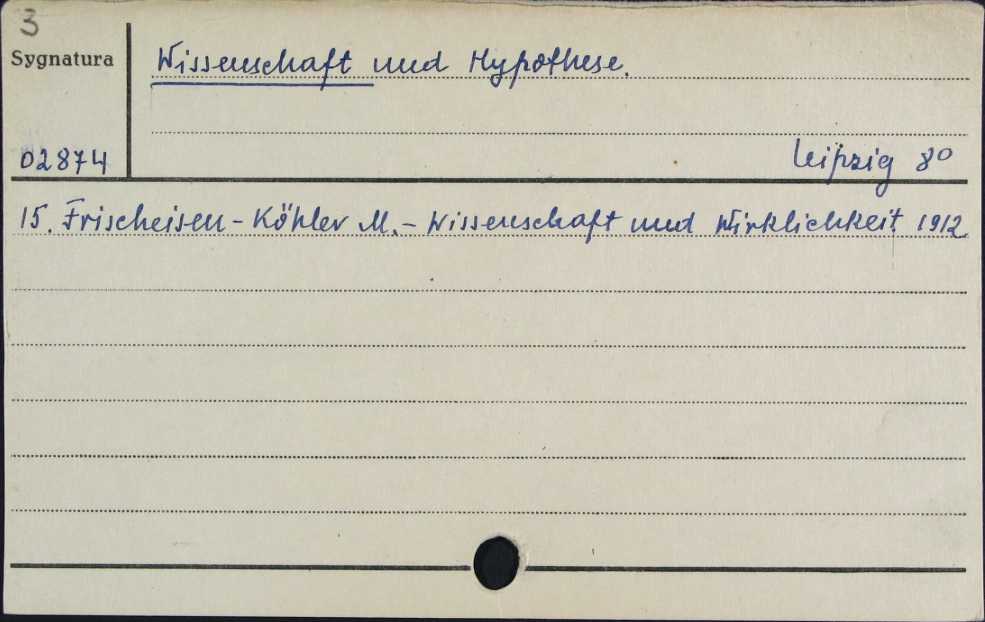 3
Sygnatura
Wissenschaft und Hypothese.
02874
Leipzig 8°
15. Frischeisen-Köhler M. - Wissenschaft und Wirklichkeit 1912